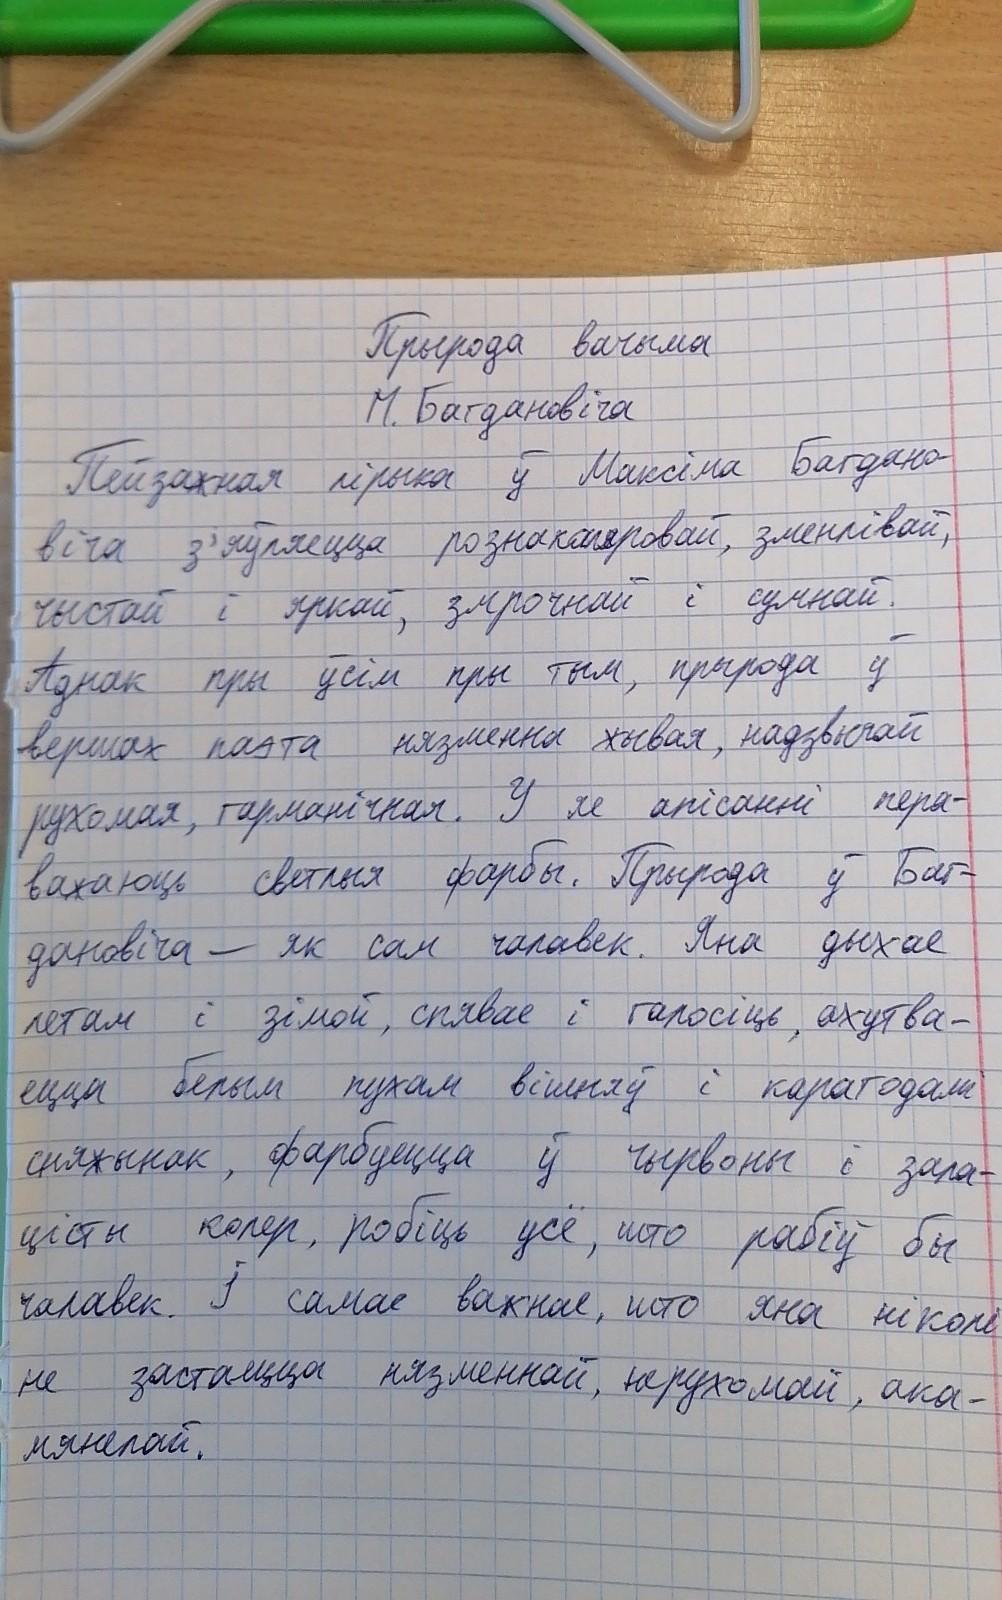 Прырода вачыма
М. Багдановіча
Пейзажная лірыка ў Максіма Багдано-
віча з'яўляецца рознакаляровай, зменлівай,
чыстай і яркай, змрочнай і сумнай.
Аднак пры ўсім пры тым, прырода ў
вершах паэта нязменна жывая, надзвычай
рухомая, гарманічная. У яе апісанні пера-
важаюць светлыя фарбы. Прырода ў Баг-
дановіча — як сам чалавек. Яна дыхае
летам і зімой, спявае і галосіць, ахутва-
ецца белым пухам вішняў і карагодамі
сняжынак, фарбуецца ў чырвоны і зала-
цісты колер, робіць усё, што рабіў бы
чалавек. І самае важнае, што яна ніколі
не застаецца нязменнай, нерухомай, ака-
мянелай.